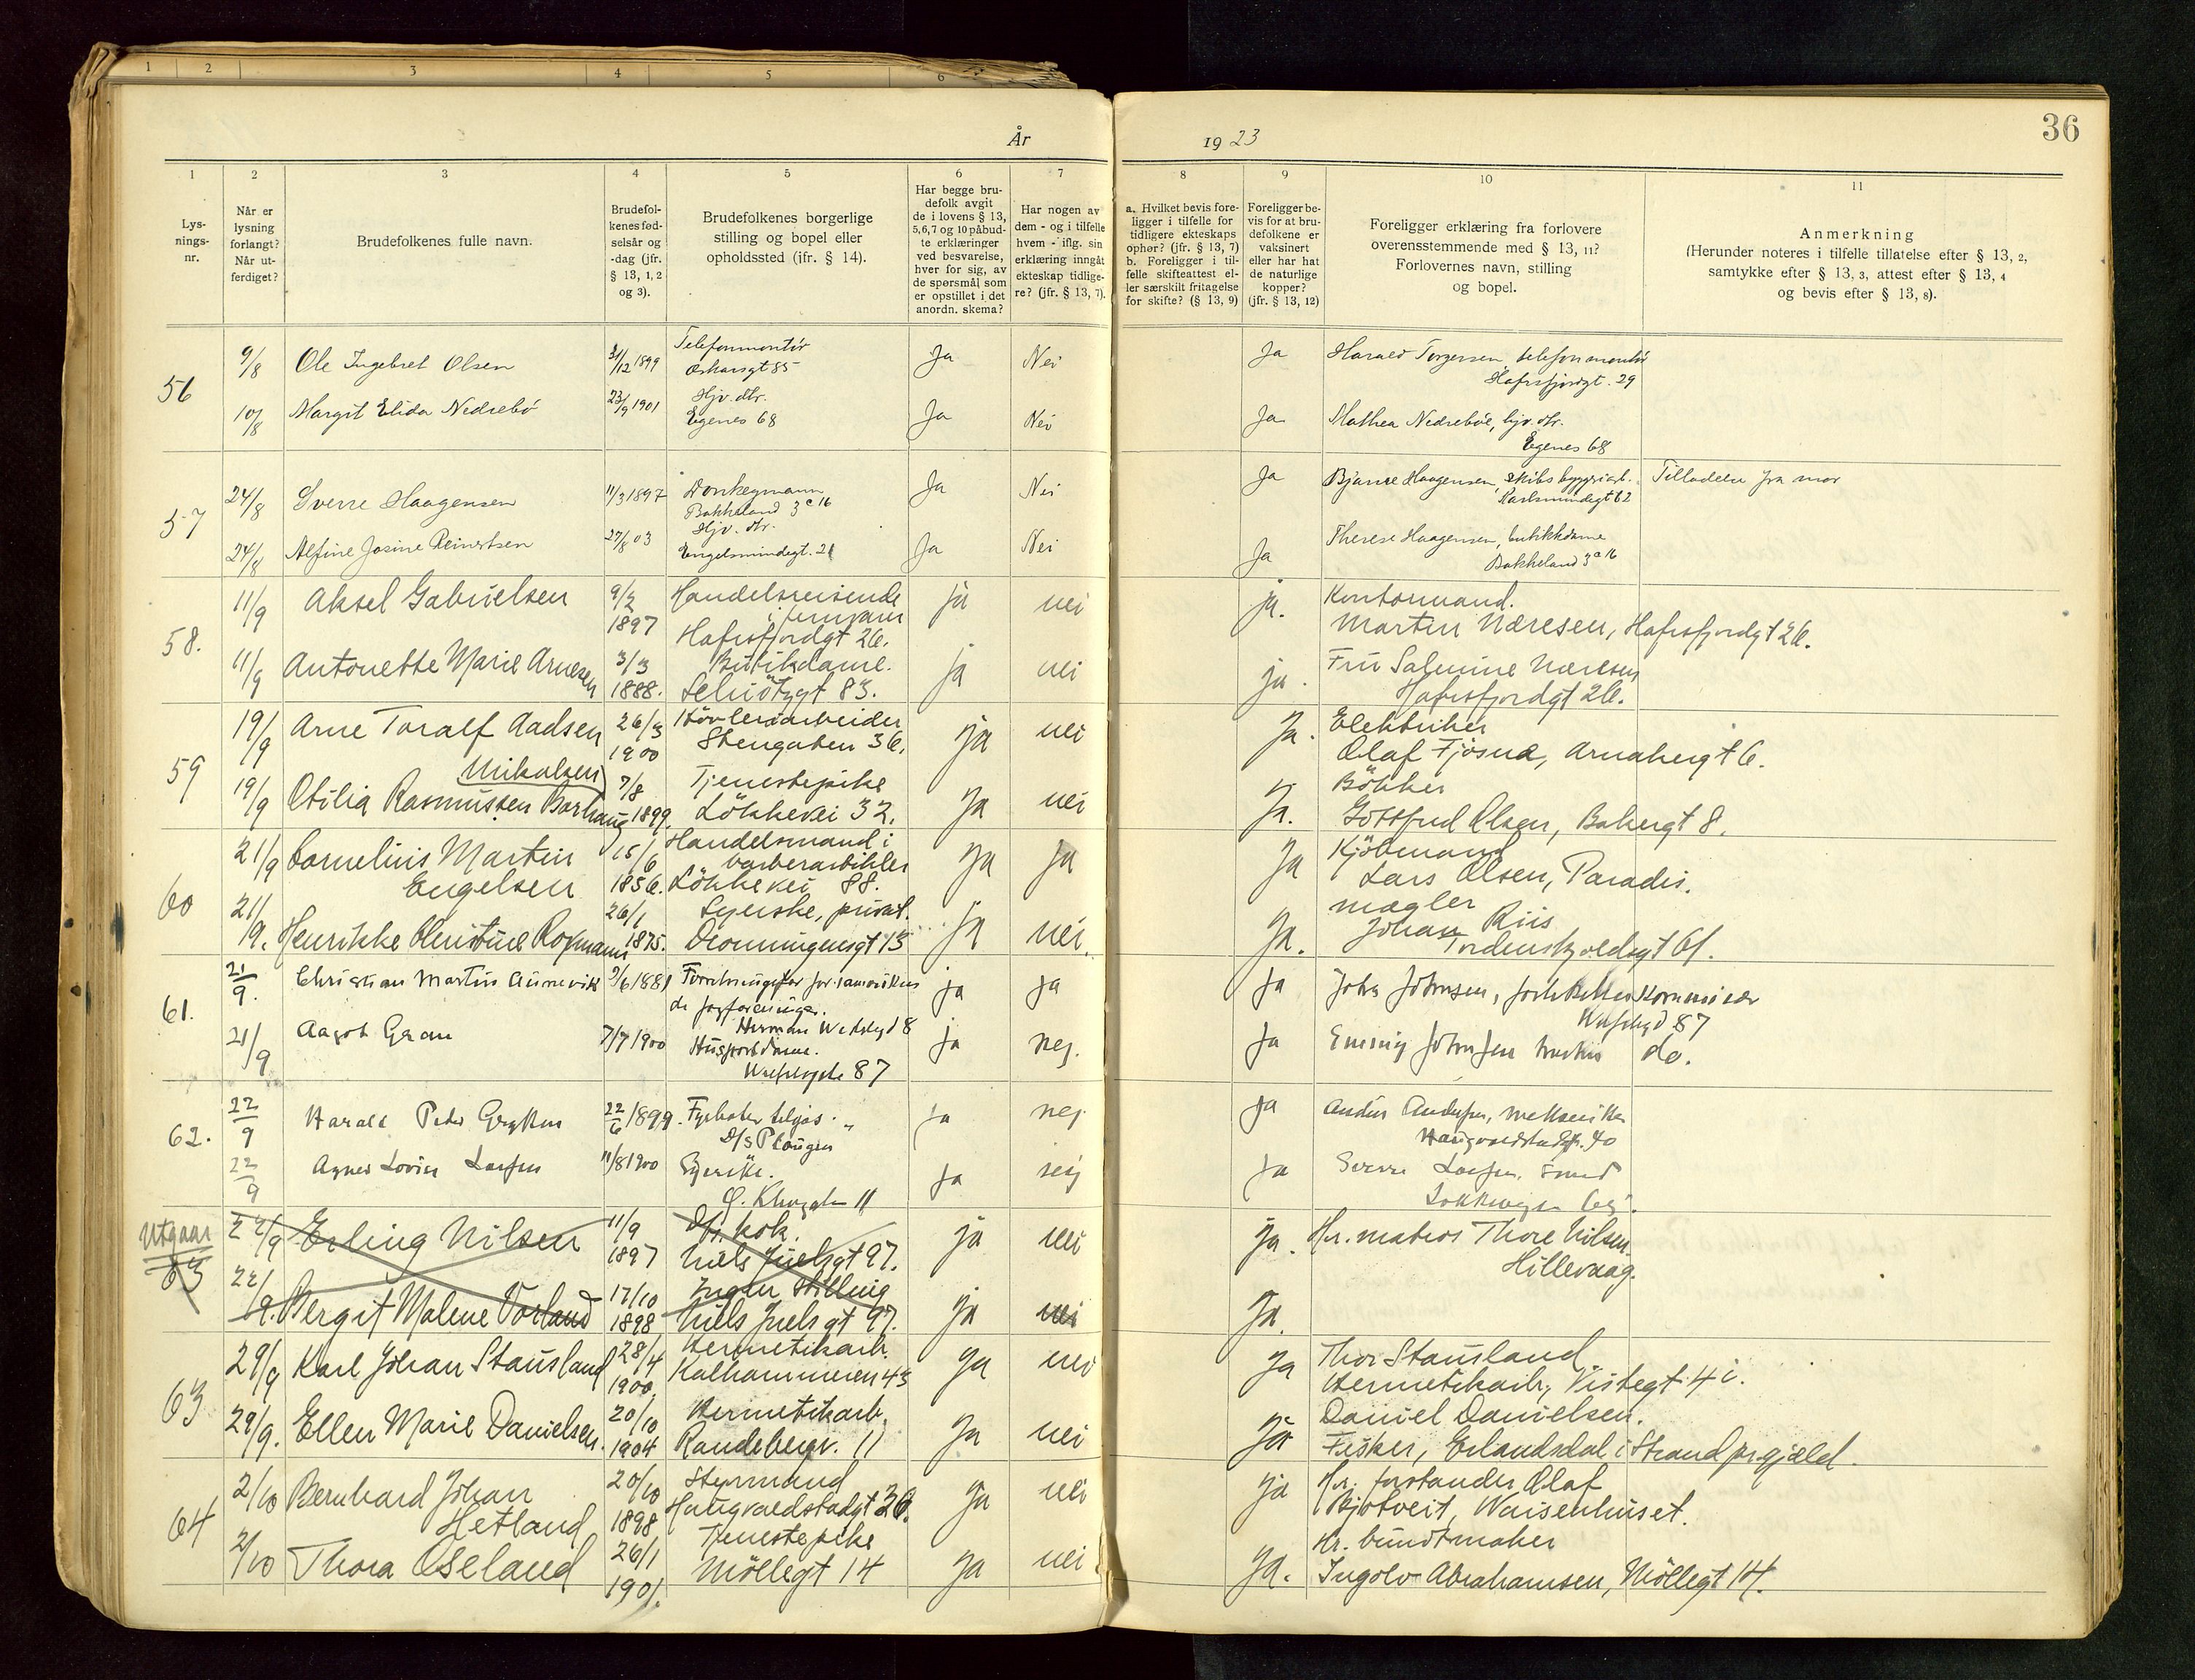 1 2 3 4 5 6
36
År 1923
1 2 3 4 5 6 7 8 9 10 11
Lys-
nings-
nr.
Når er
lysning
forlangt?
Når ut-
ferdiget?
Brudefolkenes fulle navn.
Brudefol-
kenes fød-
selsår og
-dag (jfr.
§ 13, 1, 2
og 3).
Brudefolkenes borgerlige
stilling og bopel eller
opholdssted (jfr. § 14).
Har begge bru-
defolk avgit
de i lovens § 13,
5,6,7 og 10 påbud-
te erklæringer
ved besvarelse,
hver for sig, av
de spørsmål som
er opstillet i det
anordn. skema?
Har nogen av
dem - og i tilfelle
hvem - iflg. sin
erklæring inngåt
ekteskap tidlige-
re? (jfr. § 13, 7).
a. Hvilket bevis fore-
ligger i tilfelle for
tidligere ekteskaps
ophør? (jfr. § 13, 7)
b. Foreligger i til-
felle skifteattest el-
ler særskilt fritagelse
for skifte? (§ 13, 9)
Foreligger be-
vis for at bru-
defolkene er
vaksinert
eller har hat
de naturlige
kopper?
(jfr. § 13, 12)
Foreligger erklæring fra forlovere
overensstemmende med § 13, 11?
Forlovernes navn, stilling
og bopel.
Anmerkning
(Herunder noteres i tilfelle tillatelse efter § 13, 2,
samtykke efter § 13, 3, attest efter § 13, 4
og bevis efter § 13, 8).
56
9/8 Ole Ingebret Olsen 31/12 1899 Telefonmontör
Oskarsgt 85 Ja Nei Ja Harald Torgersen, telefonmontör
Hafrsfjordgt. 29
10/8 Margit Elida Nedrebö 23/9 1901 Hjv. dtr.
Egenes 68 Ja Nei Ja Mathea Nedreböe, hjv. dtr.
Egenes 68
57
24/8 Sverre Haagensen 11/3 1897 Donkeymann
Bakkeland 3 c 16 Ja Nei Ja Bjarne Haagensen, skibsbyggeriarb.
Karlsmindegt 62 Tilladelse fra mor
24/8 Alfine Josine Reinertsen 27/8 03 Hjv. dtr.
Engelsmindegt. 21 Ja Nei Ja Therese Haagensen, butikkdame
Bakkeland 3 a 16
58.
11/9 Aksel Gabrielsen 9/2
1897 Handelsreisende
i jernvarer
Hafrsfjordgt 26. ja nei ja. Kontormand.
Martin Næresen, Hafrsfjordgt 26.
11/9 Antonette Marie Arnesen 3/3
1888. Butikdame.
Schiötzgt 83. ja nei ja. Fru Salmine Næresen
Hafrsfjordgt 26.
59
19/9 Arne Toralf Aadsen 26/3
1900 Hövleriarbeider
Stengaten 36. ja nei Ja. Elektriker
Olaf Fjösne, Arnebergt 6.
Mikalsen
19/9 Otilia Rasmussen Barhaug 7/8
1899. Tjenestepike
Lökkevei 32. Ja nei Ja. Bökker
Gottfred Olsen, Bakergt 8.
60
21/9 Cornelius Martin
Engelsen 15/6
1856. Handelsmand i
barberartikler
Lökkevei 88. Ja Ja Ja Kjöbmand
Lars Olsen, Paradis.
21/9. Henrikke Christine Rosmann 26/1
1875. Syerske, privat.
Dronningensgt 15 Ja nei. Ja. mægler
Johan Riis
Tordenskjoldsgt 61.
61.
21/9. Christian Martin Aunevik 9/6 1881
Herman Wedelsgd 8 ja ja Ja John Johnsen,
87
21/9 Aagot Gran 7/7 1900
87 ja nej. Ja Emmy Johnsen do.
62.
22/9 Harald Peder 22/6 1899. Fyrboter
D/S Plougen Ja nej Ja Anders Andersen, mekaniker
Haugvaldstadgt. 40
22/9 Agnes Lovise Larsen 11/8 1900 Syerske.
11 Ja nej Ja Sverre Larsen, smed
Utgaar
63
22/9 Erling Nilsen 11/9
1897 D/s kok.
Niels Juelsgt 97. ja nei ja. Hr. matros Thore Nilsen.
Hillevaag.
22/9. Bergit Malene Vorland 17/10
1898 Ingen stilling
Niels Juelsgt 97. ja nei Ja.
63
29/9 Karl Johan Stausland 28/4
1900. Hermetikarb.
Kalhammeren 43 Ja nei Ja Thor Stausland
Hermetikarb, Vistegt 4 i.
29/9. Ellen Marie Danielsen. 20/10
1904 Hermetikarb.
Randebergv. 11 Ja nei Ja Daniel Danielsen.
Fisker, Erlandsdal i Strand prgjæld.
64
2/10 Bernhard Johan
Hetland 20/10
1898 Styrmand
Haugvaldstadgt 36. Ja nei Ja Hr. forstander Olaf
Bjotveit, Waisenhuset.
2/10 Thora Oseland 26/1
1901. Tjenestepike
Möllegt 14 Ja nei Ja. Hr. bundtmaker
Ingolv Abrahamsen, Möllegt 14.